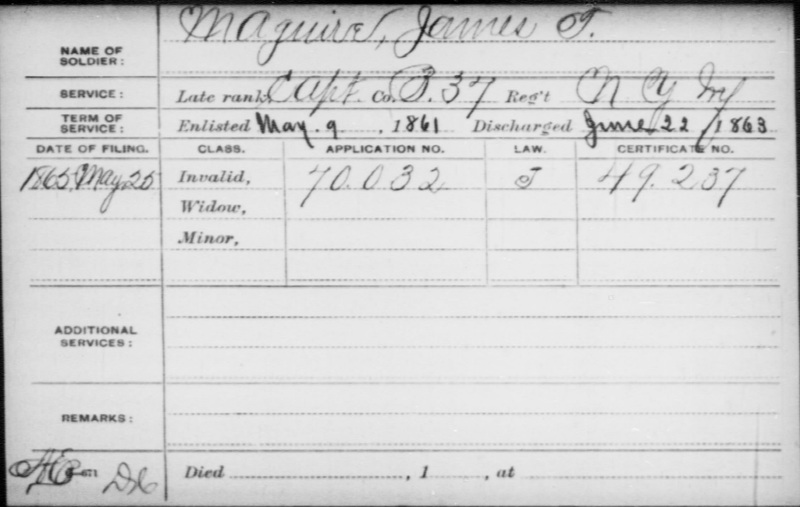 NAME OF SOLDIER: Maguire, James T.
SERVICE: Late rank, Capt. Co. B. 37 Reg't N Y Inf
TERM OF SERVICE: Enlisted May. 9, 1861 Discharged June 22, 1863
DATE OF FILING. CLASS. APPLICATION NO. LAW. CERTIFICATE NO.
1865. May 25 Invalid, 70.032 J 49.237
Widow,
Minor,
ADDITIONAL SERVICES:
REMARKS:
Died , 1 , at